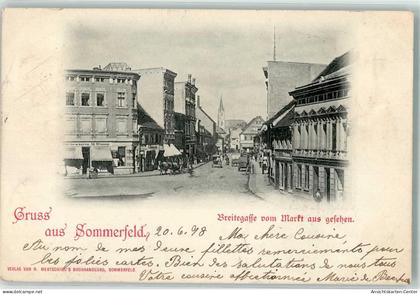 Gruss
aus Sommerfeld.
Breitegasse vom Markt aus gesehen.
20.6.98 Ma chère Cousine
au nom de mes Deux fillettes remerciements pour
les jolies cartes. Bien des salutations de nous tous
Votre cousine affectionnée Marie de
VERLAG VON
BUCHHANDLUNG, SOMMERFELD.
© Ansichtskarten-Center